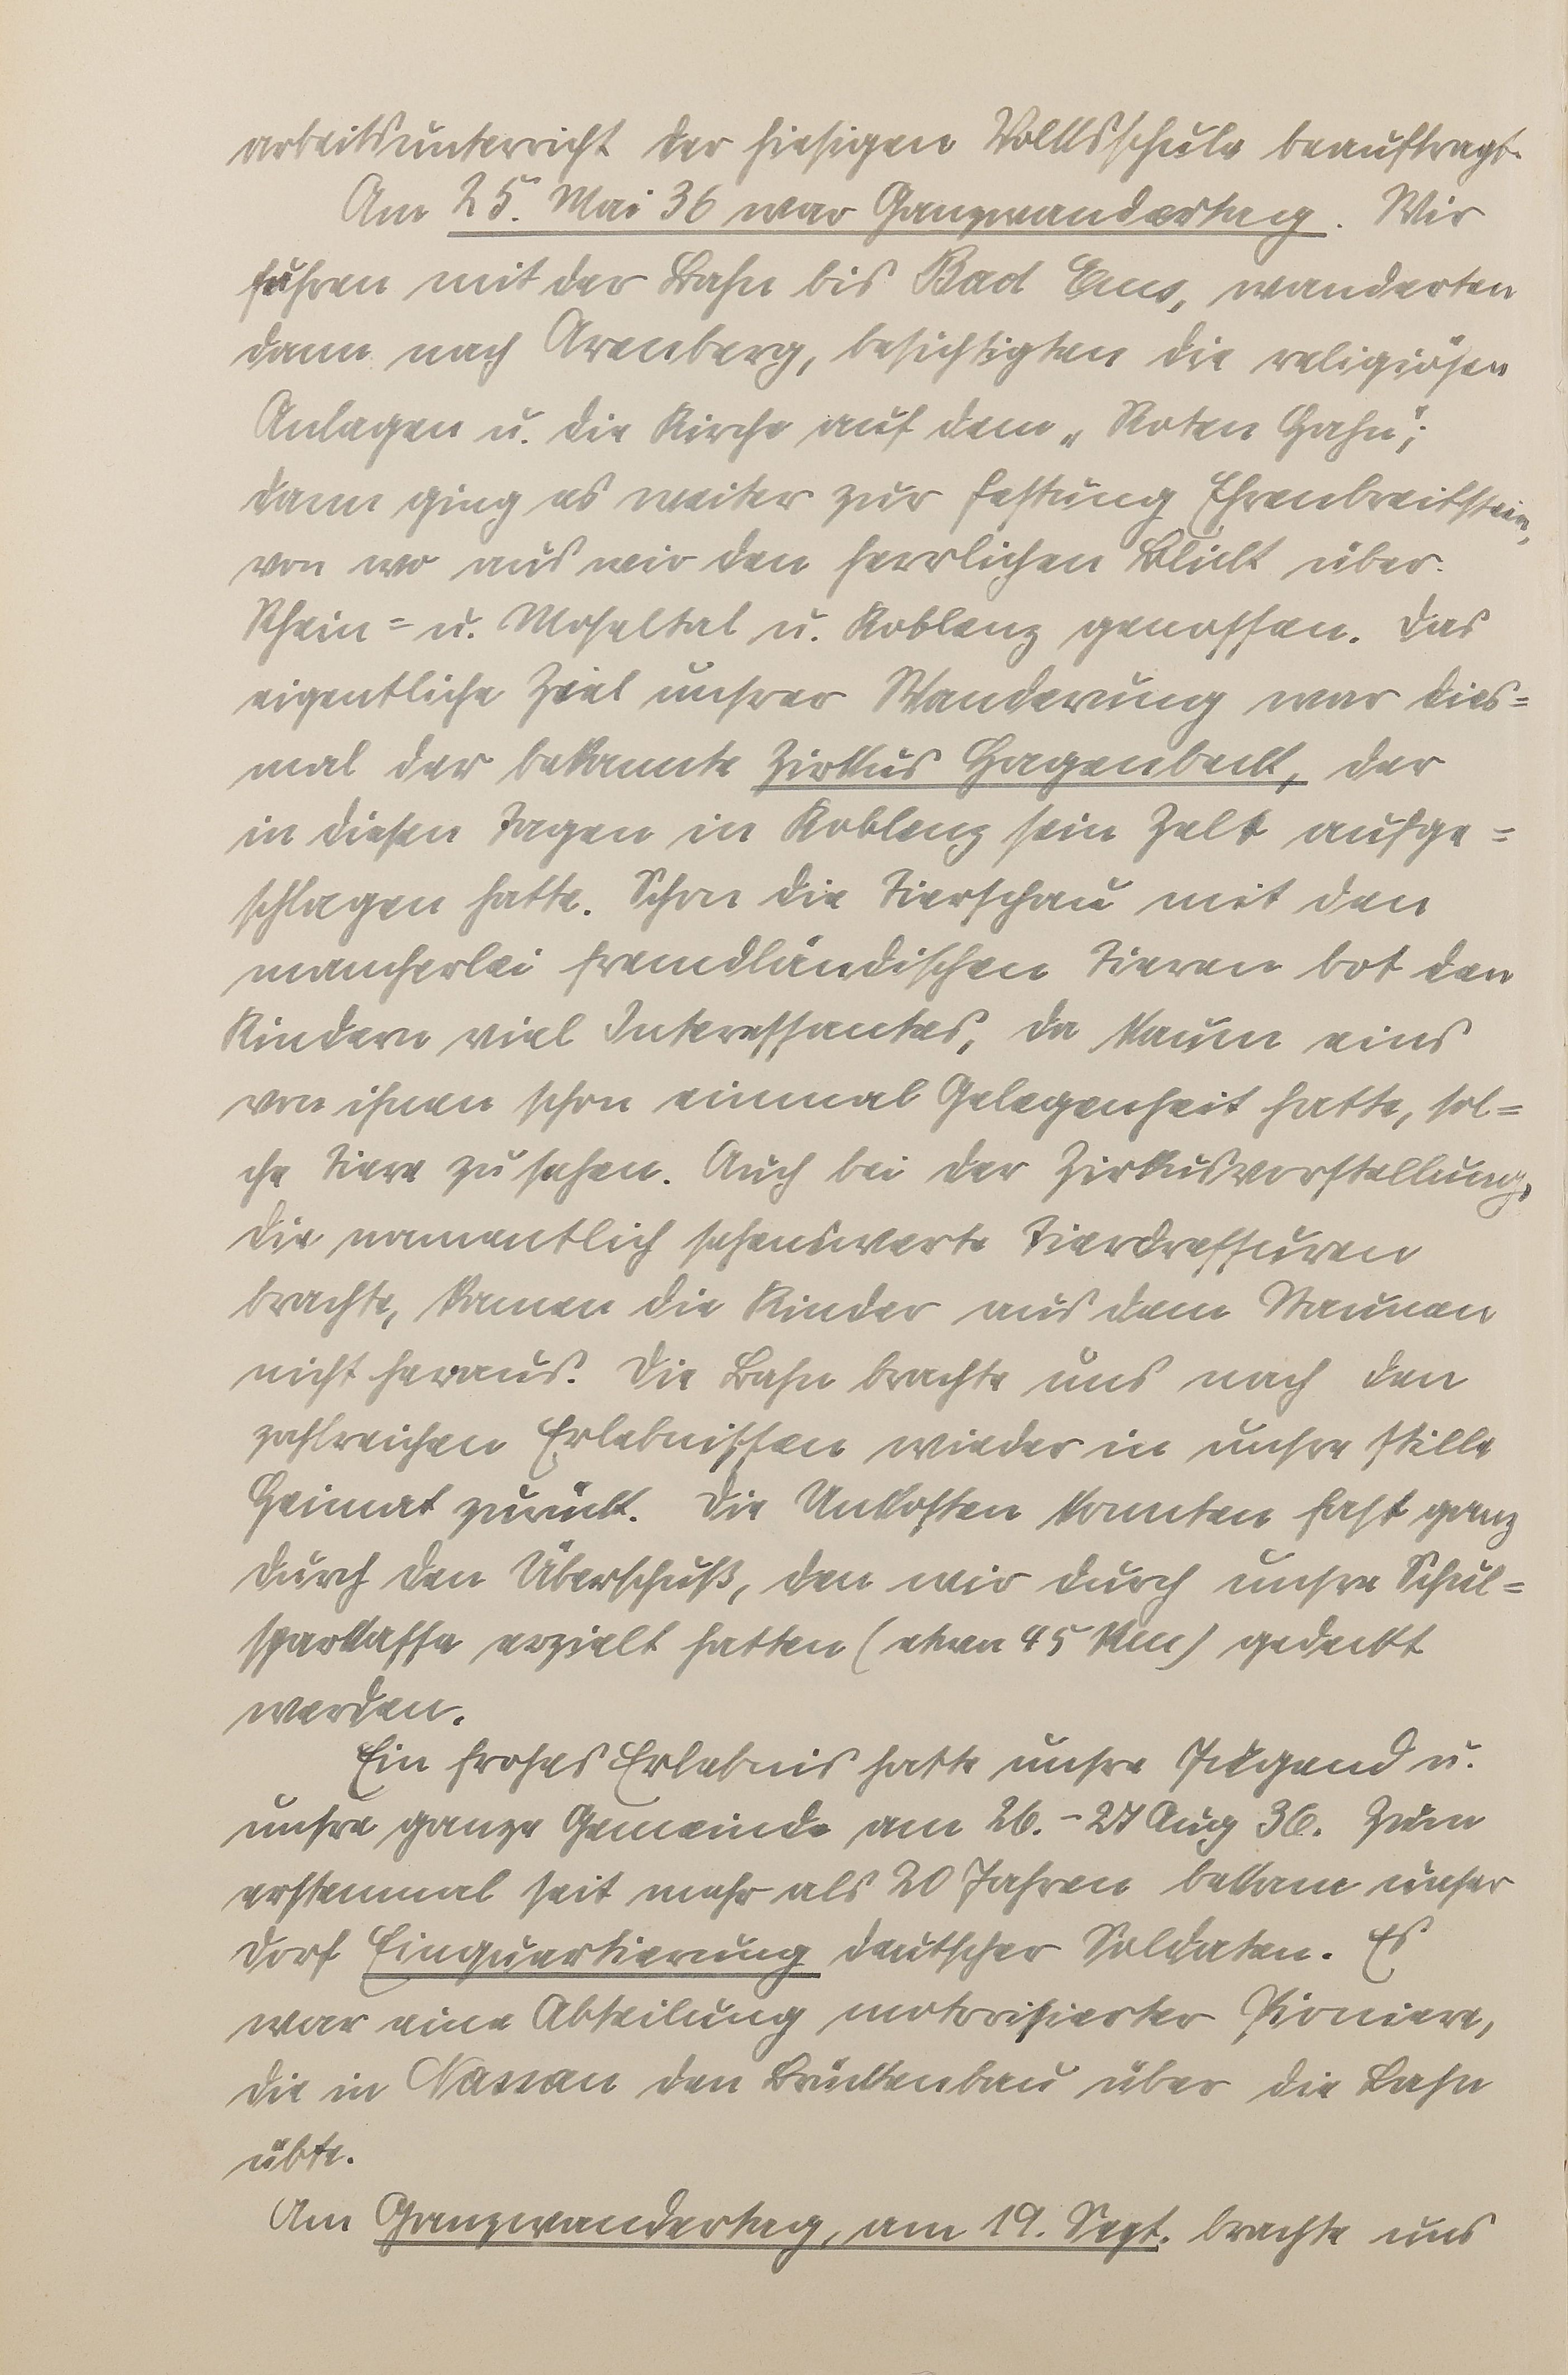 arbeitsunterricht der hiesigen Volksschule beauftragt.
Am 25. Mai 36 war Ganzwandertag. Wir
fuhren mit der Bahn bis Bad Ems, wanderten
dann nach Arenberg, besichtigten die religiösen
Anlagen u. die Kirche auf dem „Roten Hahn";
dann ging es weiter zur Festung Ehrenbreitstein,
von wo aus wir den herrlichen Blick über
Rhein= u. Moseltal u. Koblenz genossen. Das
eigentliche Ziel unsrer Wanderung war dies=
mal der bekannte Zirkus Hagenbeck, der
in diesen Tagen in Koblenz sein Zelt aufge=
schlagen hatte. Schon die Tierschau mit den
mancherlei fremdländischen Tieren bot den
Kindern viel Interessantes, da kaum eins
von ihnen schon einmal Gelegenheit hatte, sol=
che Tiere zu sehen. Auch bei der Zirkusvorstellung,
die namentlich sehenswerte Tierdressuren
brachte, kamen die Kinder aus dem Staunen
nicht heraus. Die Bahn brachte uns nach den
zahlreichen Erlebnissen wieder in unsre stille
Heimat zurück. Die Unkosten konnten fast ganz
durch den Überschuß, den wir durch unsre Schul=
sparkasse erzielt hatten (etwa 45 RM) gedeckt
werden.
Ein frohes Erlebnis hatte unsre Jugend u.
unsre ganze Gemeinde am 26.-27 Aug 36. Zum
erstenmal seit mehr als 20 Jahren bekam unser
Dorf Einquartierung deutscher Soldaten. Es
war eine Abteilung motorisierter Pioniere,
die in Nassau den Brückenbau über die Lahn
übte.
Am Ganzwandertag, am 19. Sept. brachte uns